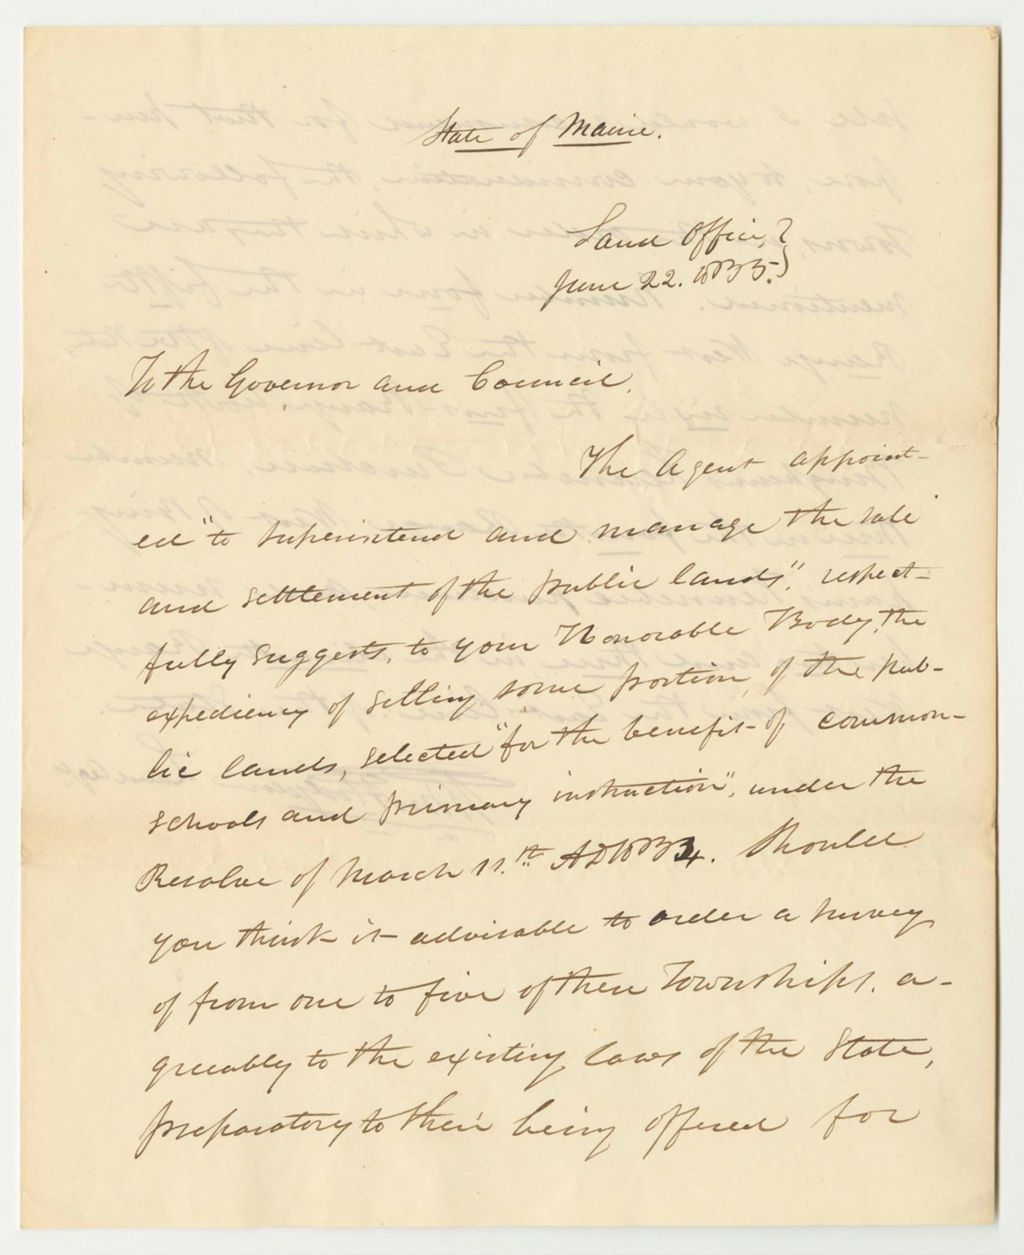 State of Maine.
Land Office,
June 22. 1835.
To the Governor and Council.
The Agent appoint-
ed "to superintend and manage the sale
and settlement of the public lands", respect-
fully suggests, to your Honorable Body, the
expediency of selling some portion, of the pub-
lic lands, selected "for the benefit of common
schools and primary instruction", under the
Resolve of March 11.th AD 1834. Should
you think it advisable to order a survey
of from one to five of these Townships, a-
greeably to the existing laws of the State,
preparatory to their being offered for